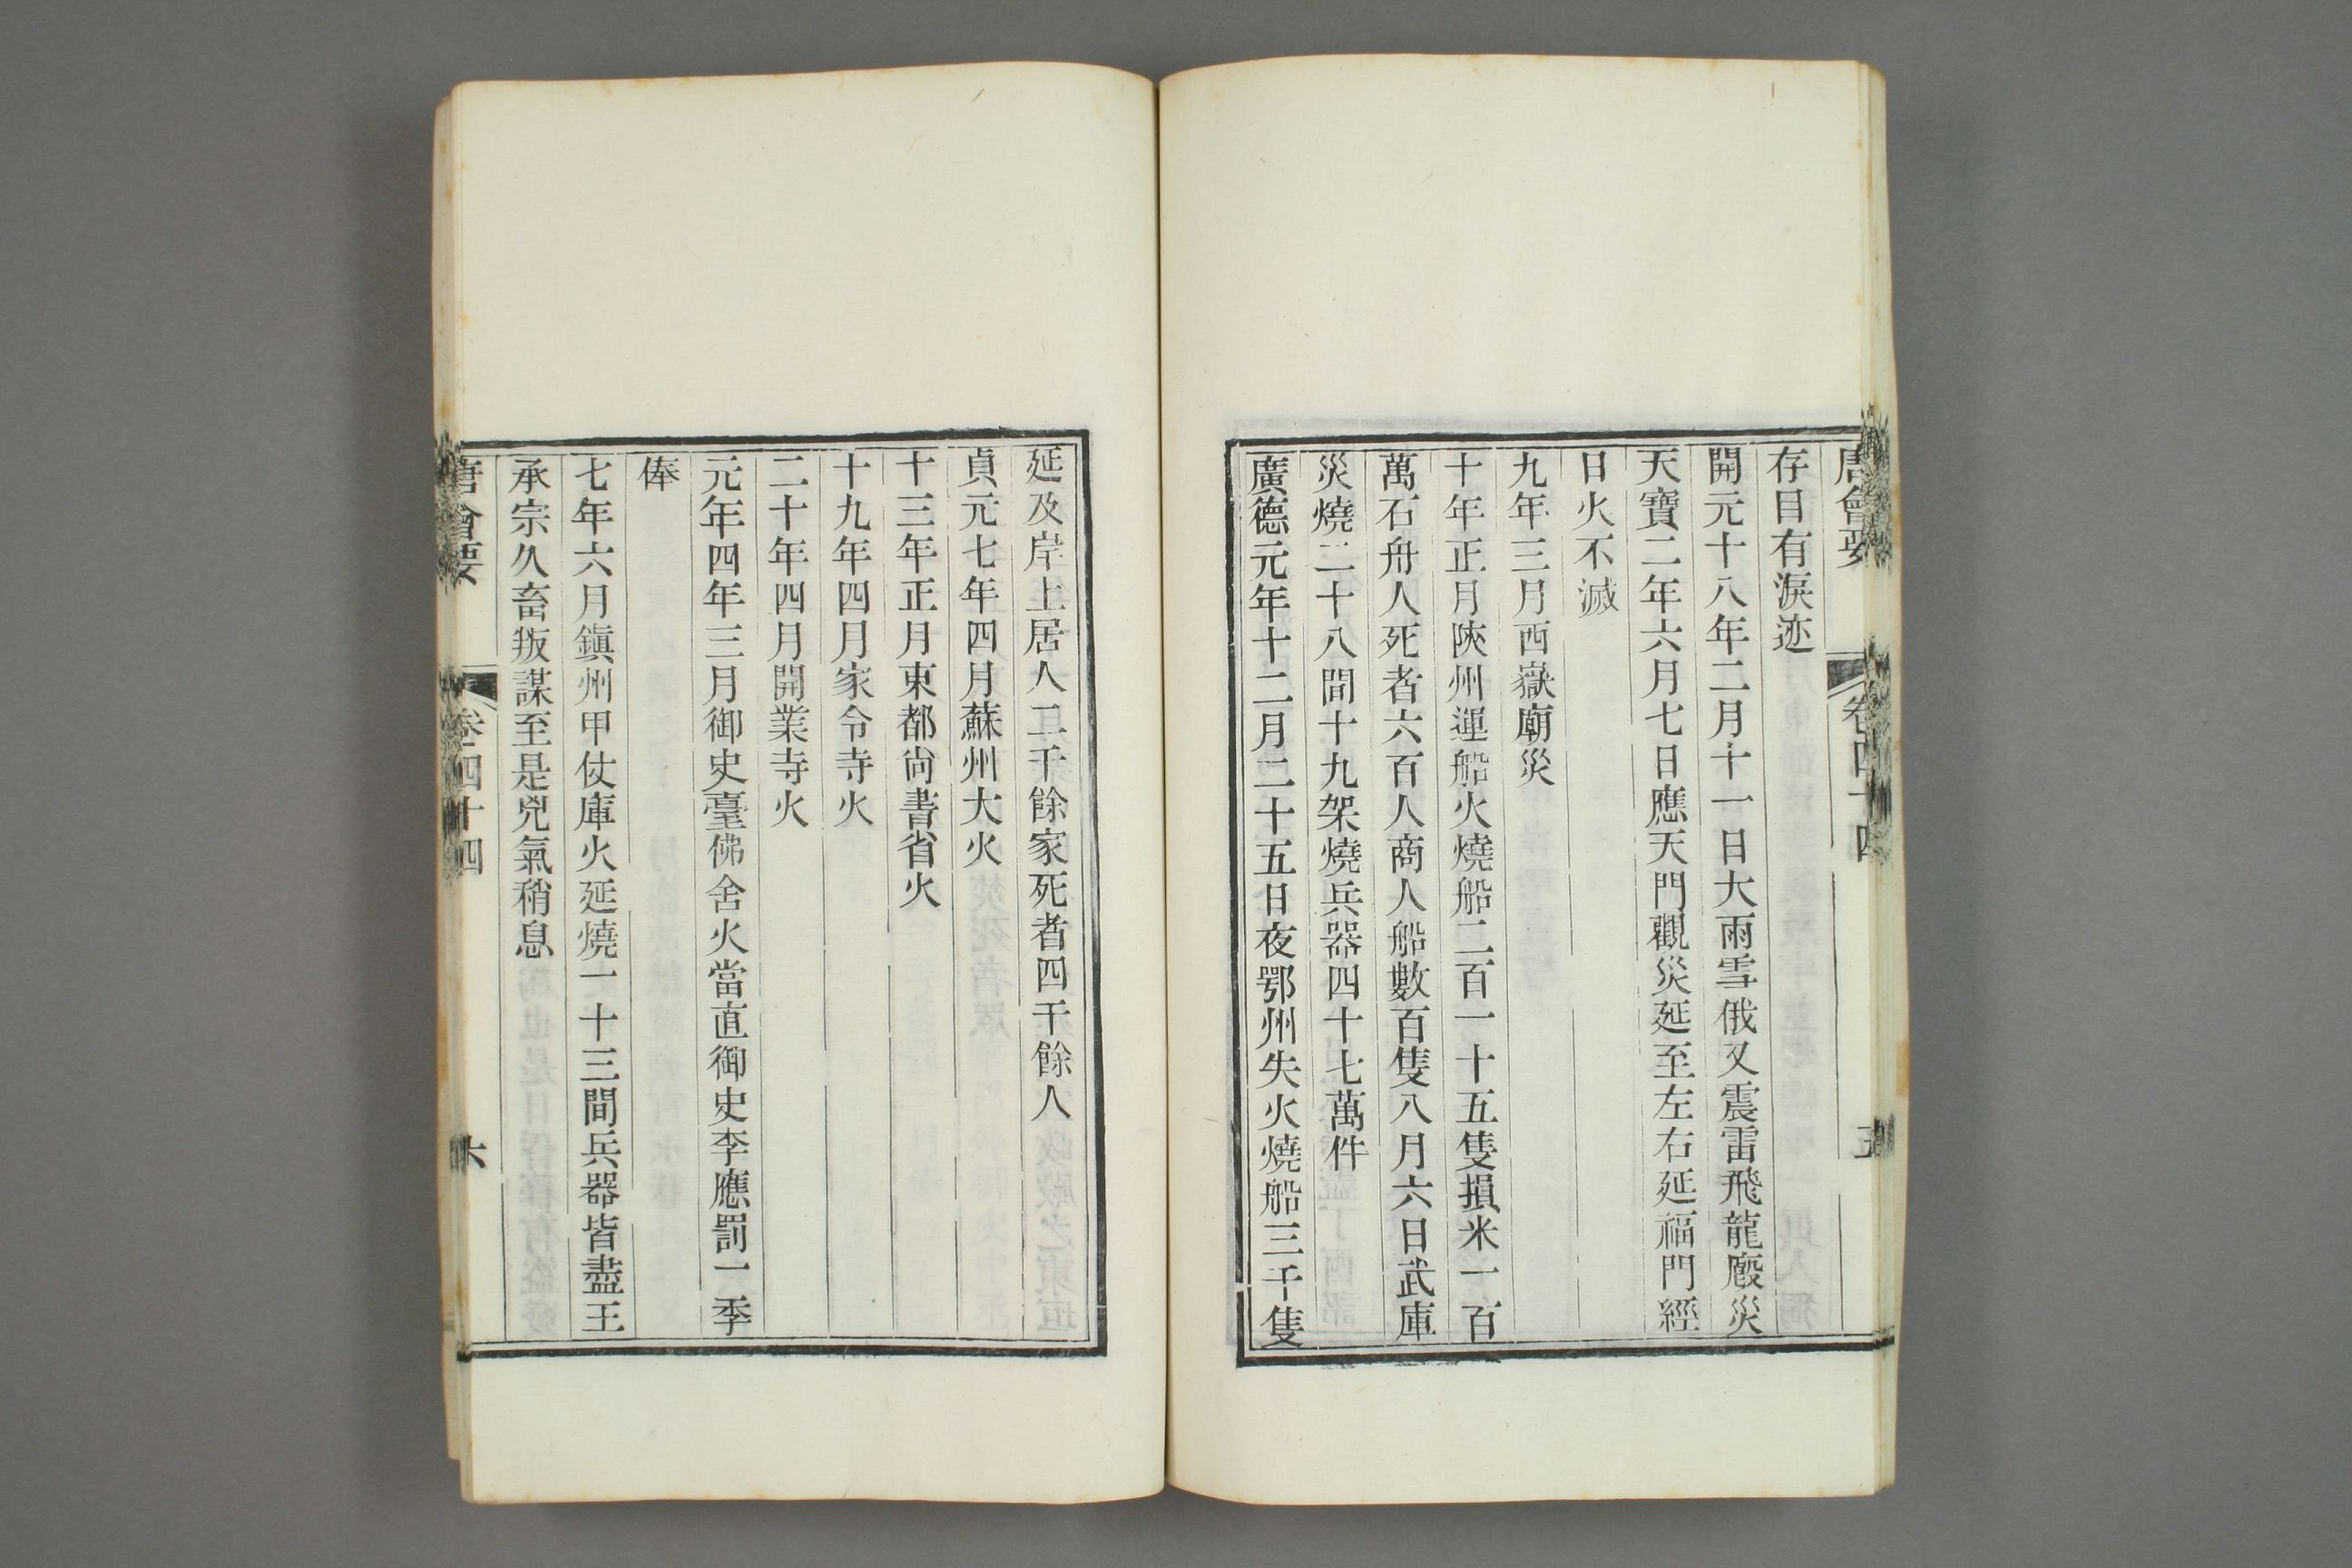 唐會要 卷四十四 五
存目有淚迹
開元十八年二月十一日大雨雪俄又震雷飛龍廄災
天寶二年六月七日應天門觀災延至左右延福門經
日火不滅
九年三月西嶽廟災
十年正月陝州運船火燒船二百一十五隻損米一百
萬石舟人死者六百人商人船數百隻八月六日武庫
災燒二十八間十九架燒兵器四十七萬件
廣德元年十二月二十五日夜鄂州失火燒船三千隻
延及岸上居人二千餘家死者四千餘人
貞元七年四月蘇州大火
十三年正月東都尚書省火
十九年四月家令寺火
二十年四月開業寺火
元年四年三月御史臺佛舍火當直御史李應罰一季
俸
七年六月鎭州甲仗庫火延燒一十三間兵器皆盡王
承宗久畜叛謀至是兇氣稍息
唐會要 卷四十四 六